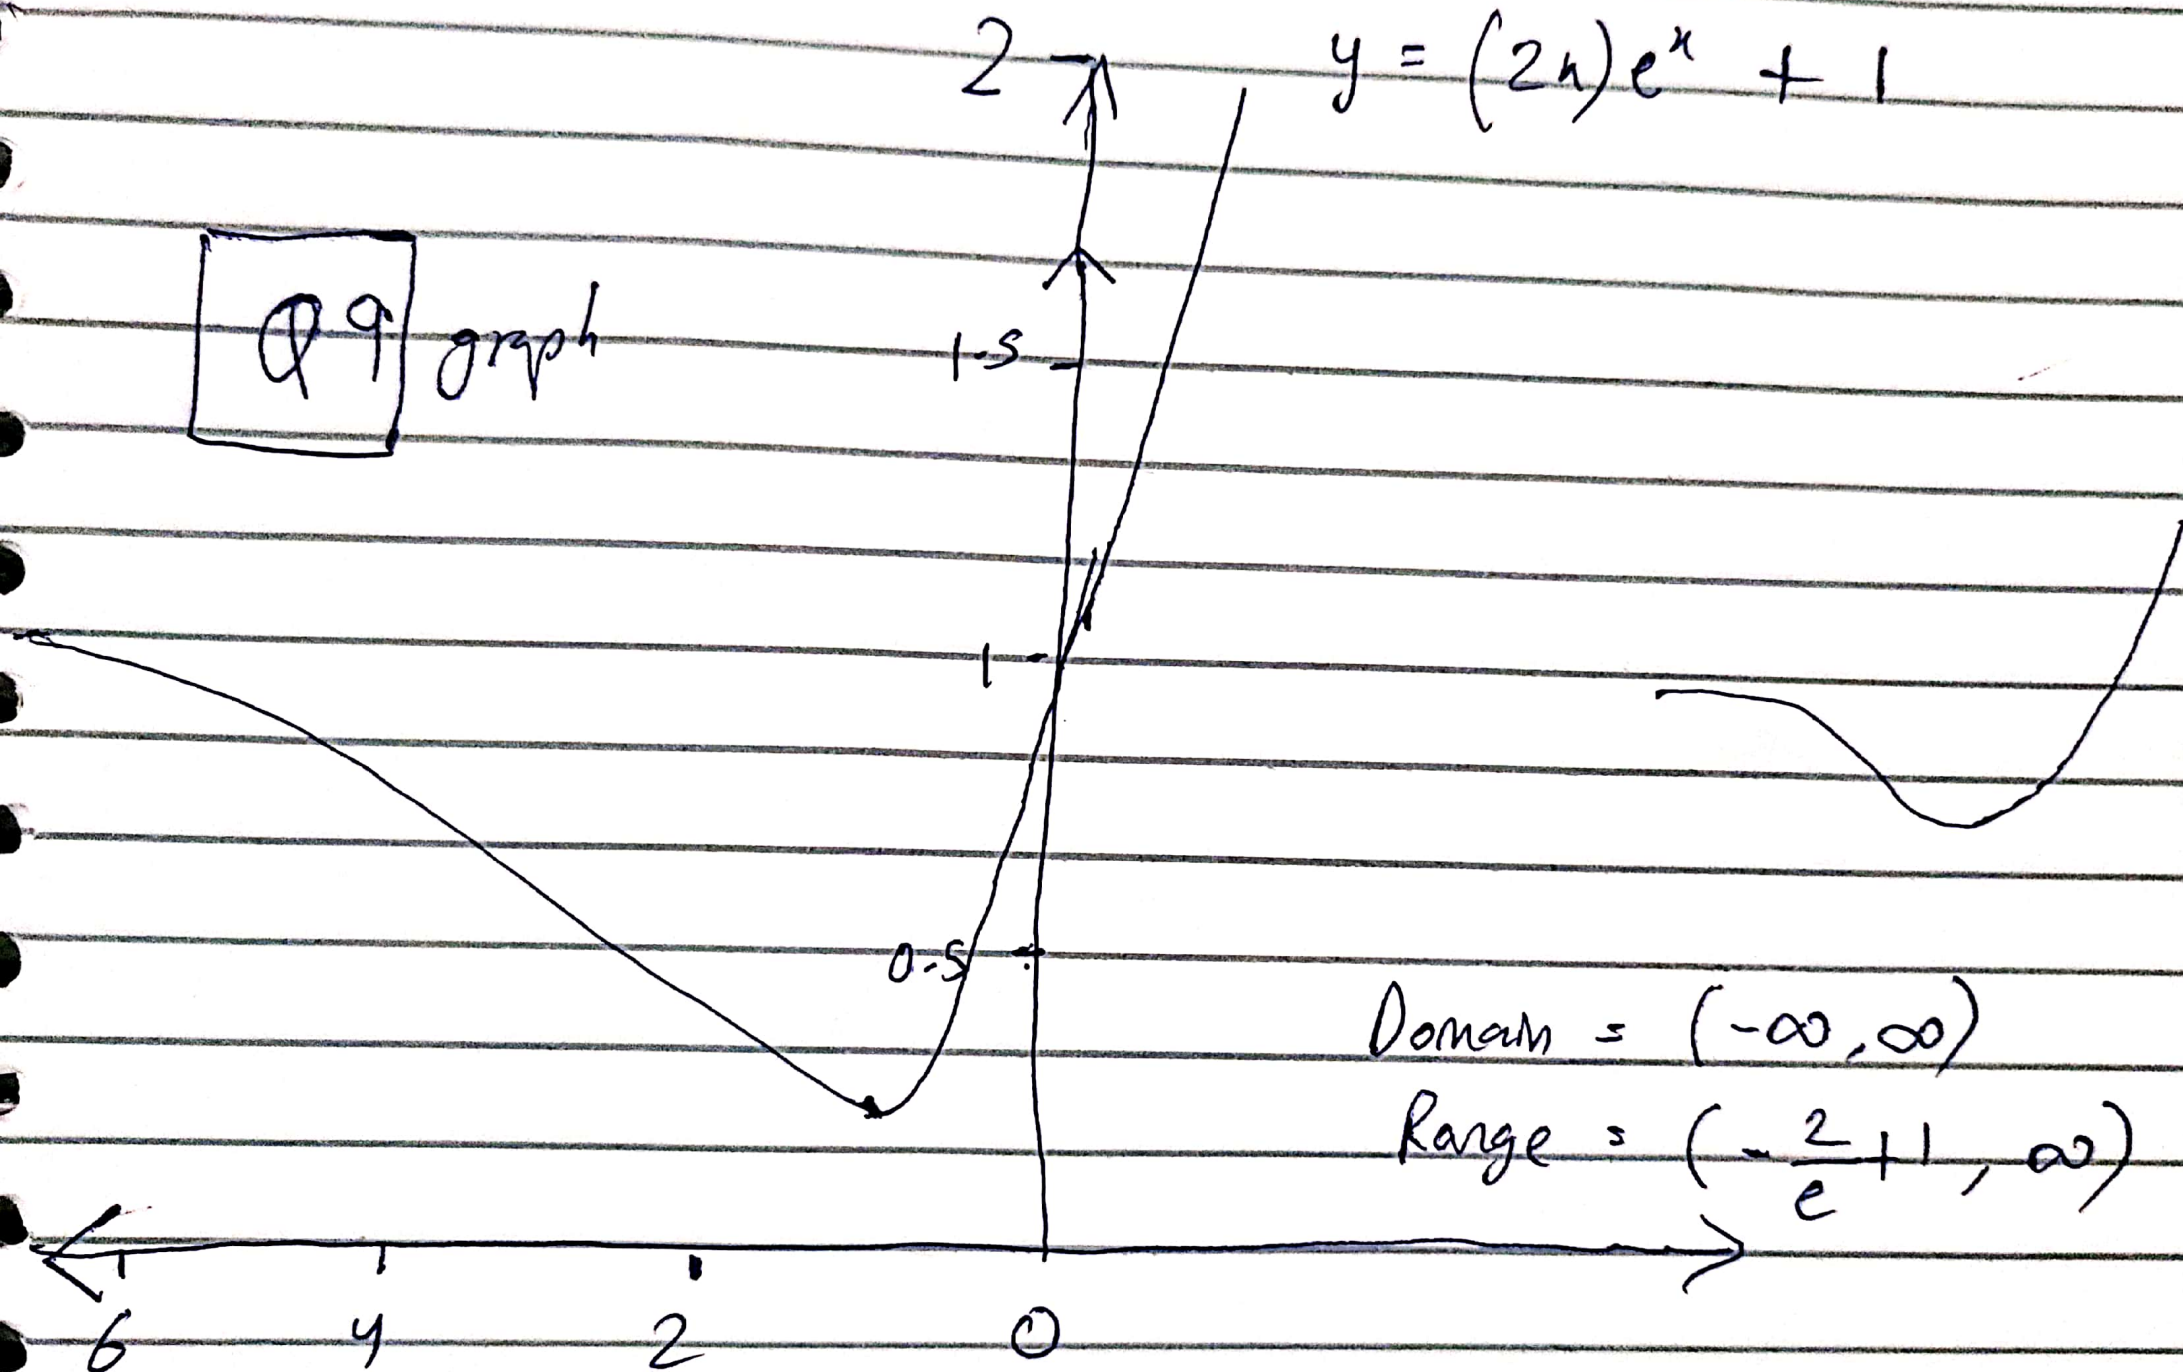 2
y = (2x)eˣ + 1
Q9 graph
1.5
1
0.5
Domain = (-∞, ∞)
Range = (-2/e+1, ∞)
6 4 2 0